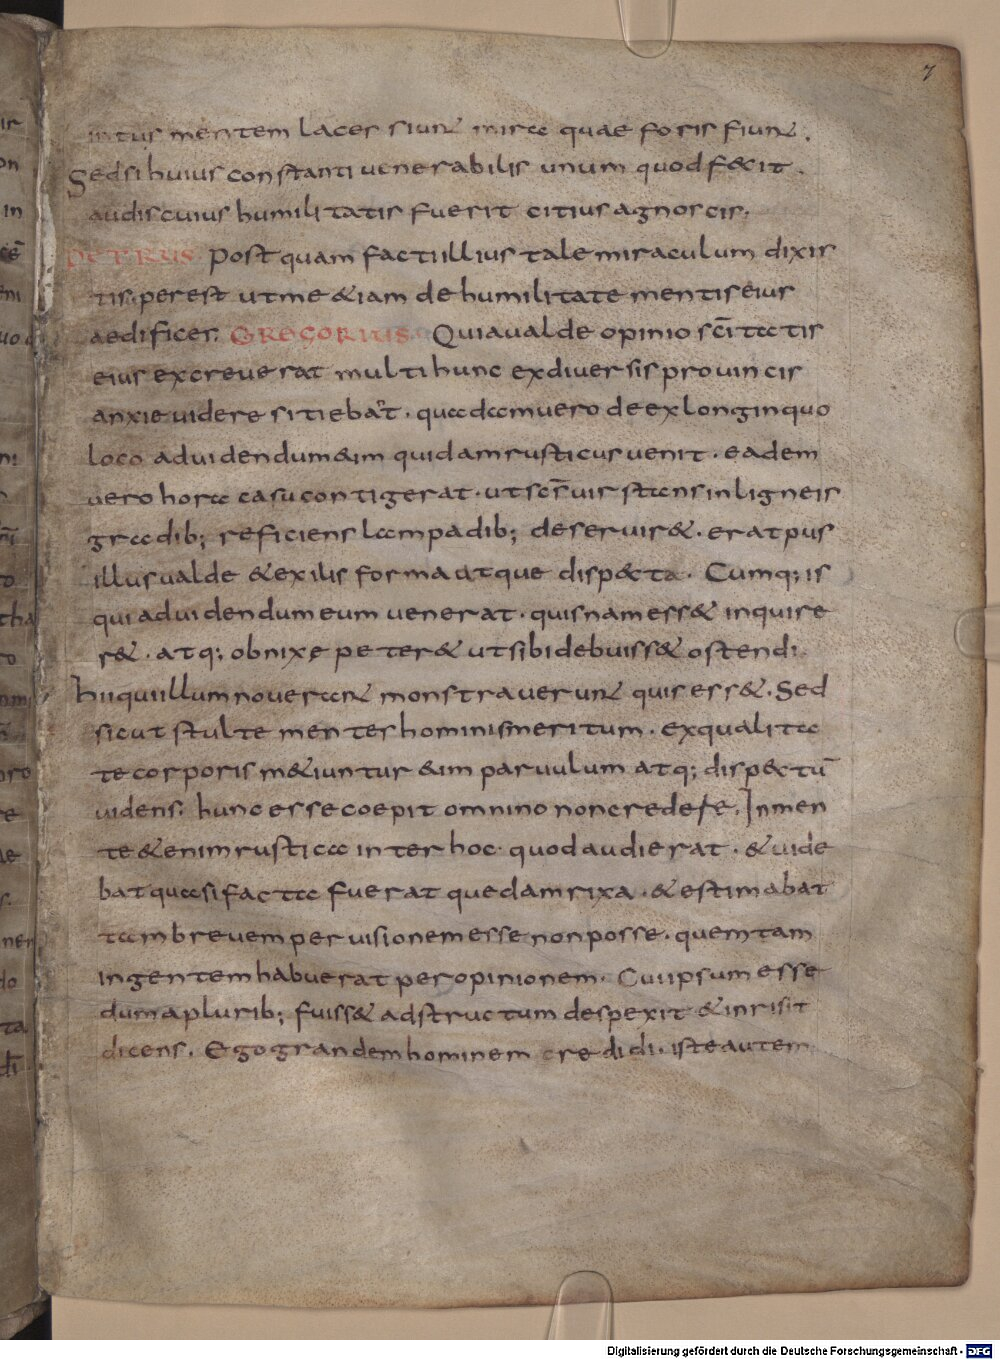 7
intus mentem lacer siunt mira quae foris fiunt.
Sed si huius constanti venerabilis unum quod fecit.
audis cuius humilitatis fuerit citius agnoscis.
PETRUS Post quam facti illius tale miraculum dixis
tis. perest ut me &iam de humilitate mentis eius
aedifices. GREGORIUS Quia valde opinio sc̄itatis
eius excreverat multi hunc ex diversis provincis
anxie videre sitiebat. quadam vero de ex longinquo
loco ad videndum &im quidam rusticus venit. eadem
vero hora casu contigerat. ut sc̄s vir stans in ligneis
gradib; reficiens lampadib; deservir&. erat pus
illus valde & exilis forma atque dispecta. Cumq; is
qui ad videndum eum venerat. quisnam ess& inquire
r&. atq; obnixe peter& ut sibi debuiss& ostendi
hii qui illum noverant monstraverunt quis ess&. Sed
sicut stulte mentes hominis meritum. ex qualita
te corporis m&iuntur &im parvulum atq; dispectū
videns. hunc esse coepit omnino non credere. In men
te &enim rustica inter hoc quod audierat. & vide
bat quasi facta fuerat quedam rixa. & estimabat
tam brevem per visionem esse non posse. quem tam
ingentem habuerat per opinionem. Cui ipsum esse
dum a plurib; fuiss& adstructum despexit & inrisit
dicens. Ego grandem hominem credidi. iste autem
Digitalisierung gefördert durch die Deutsche Forschungsgemeinschaft - DFG